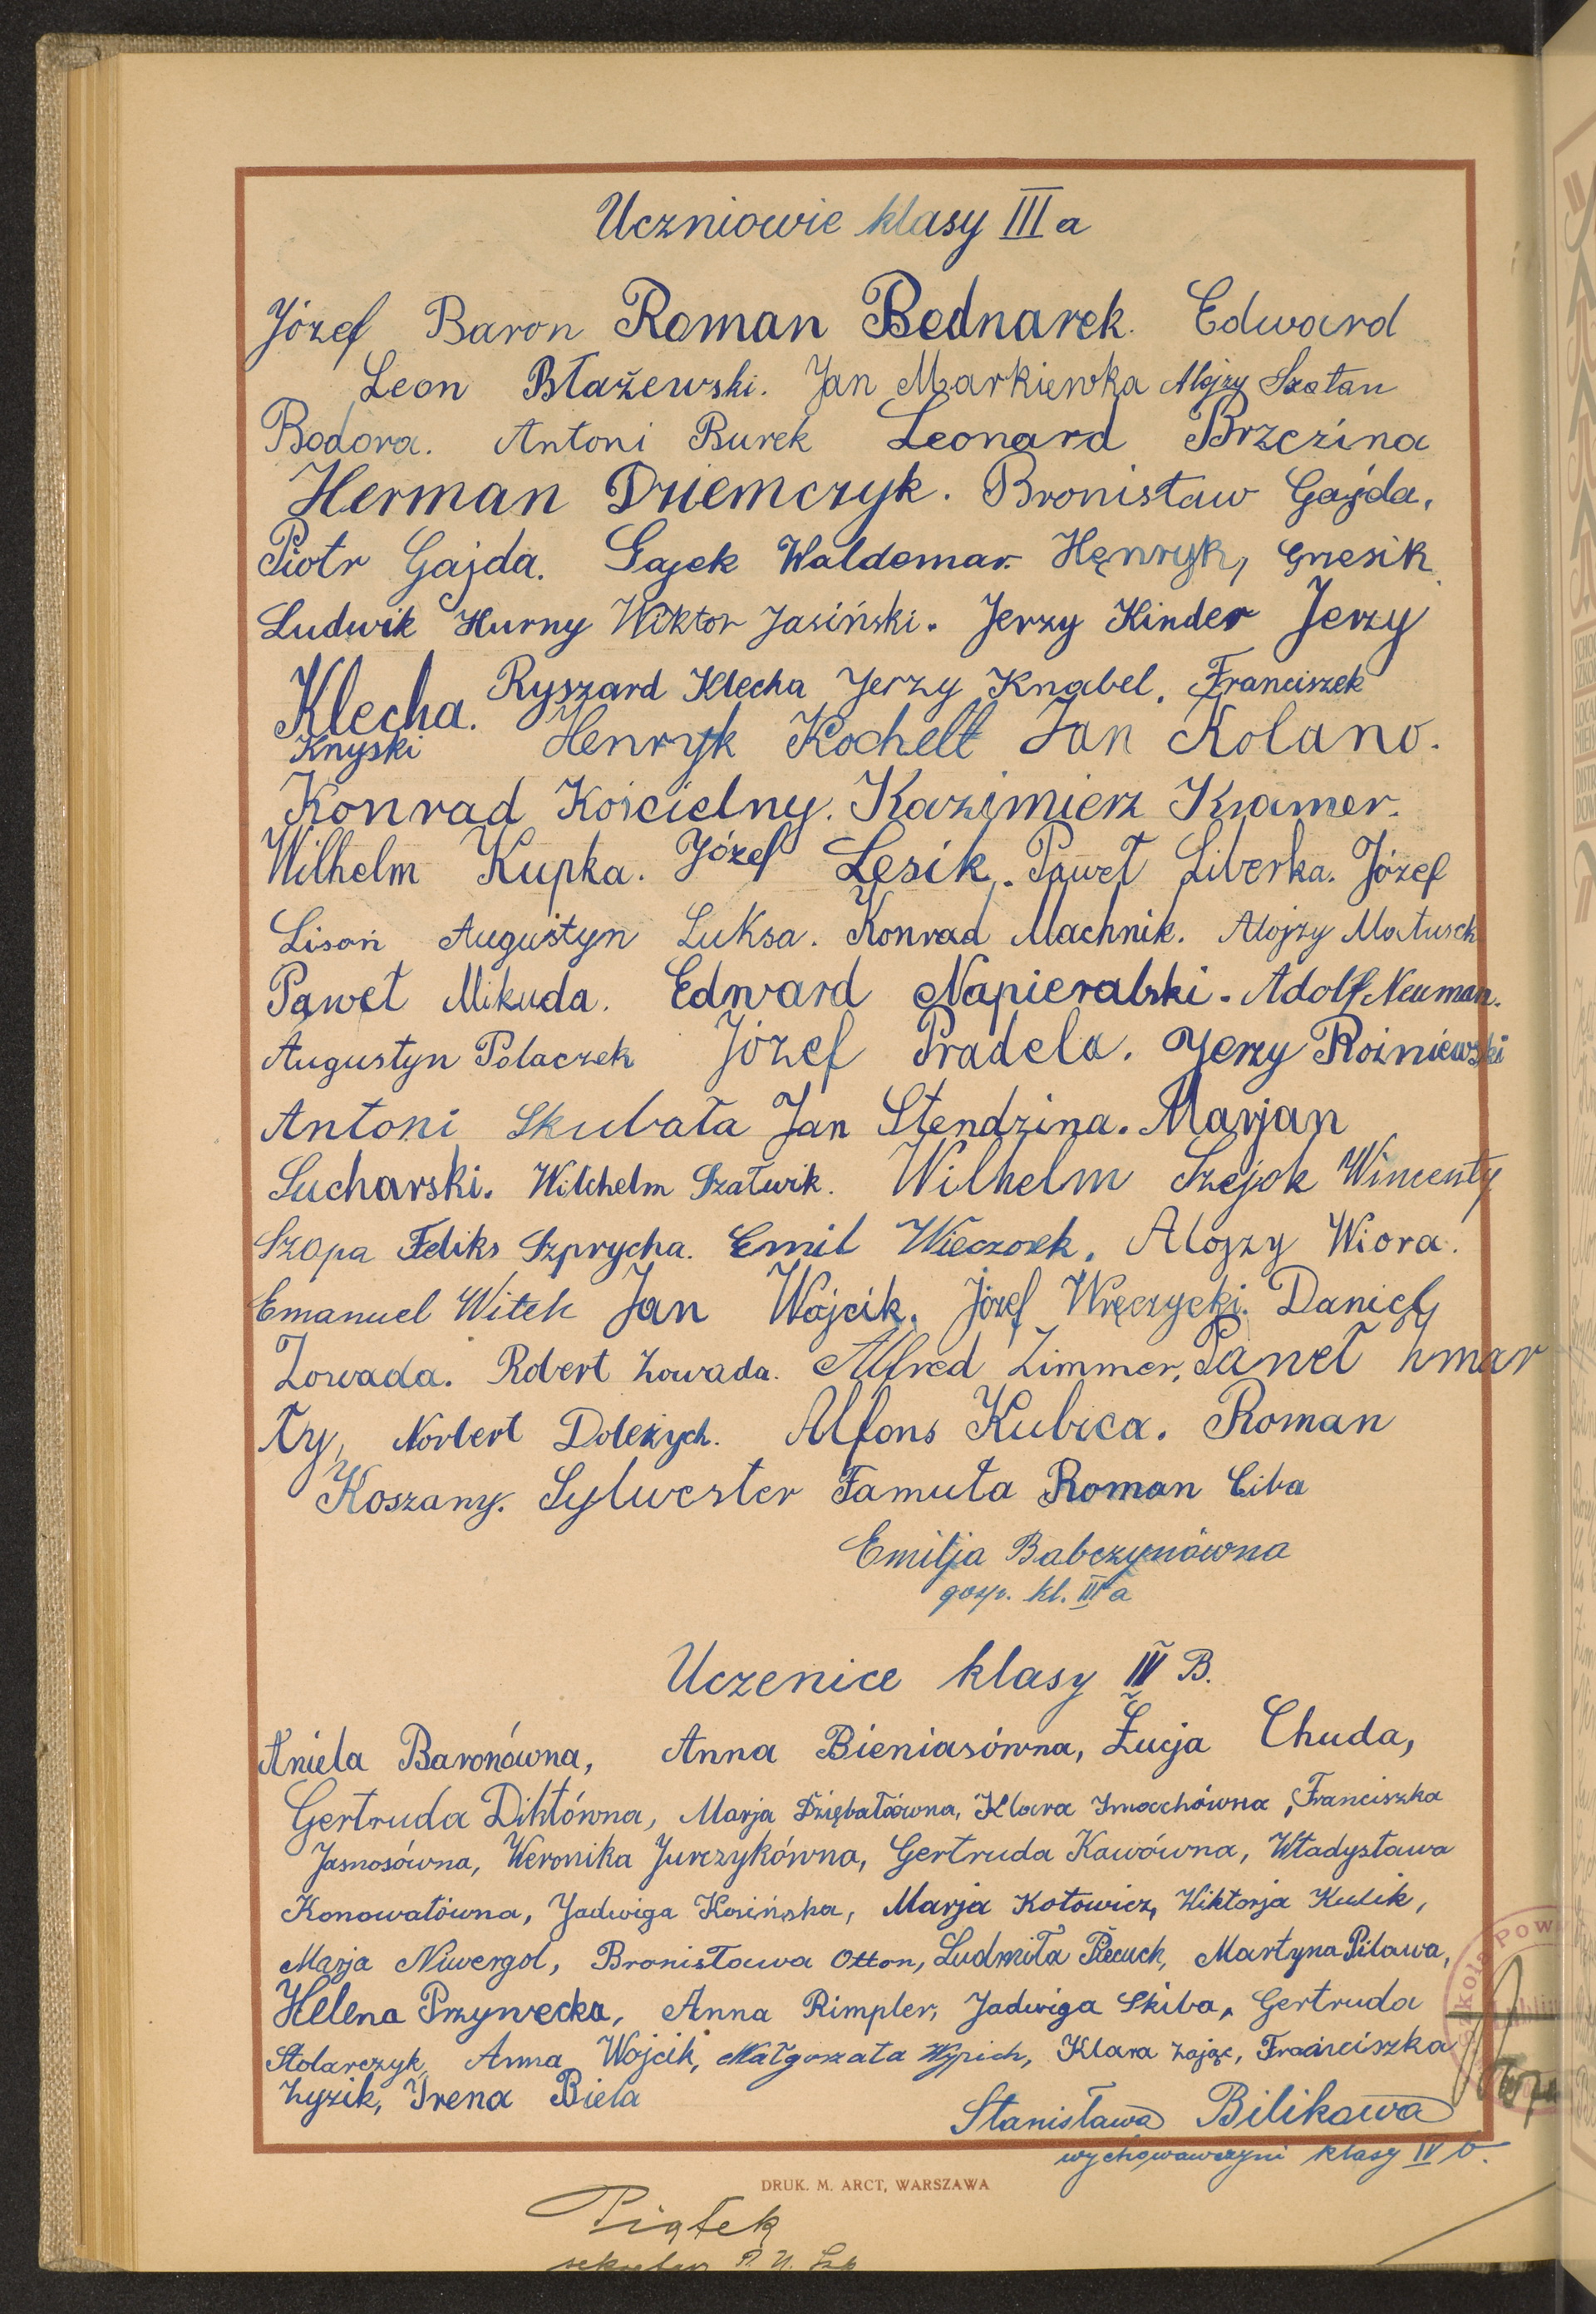 Uczniowie klasy III a
Józef Baron Roman Bednarek. Edward
Leon Błażewski. Jan Markiewka Alojzy Szołtan
Bodora. Antoni Burek Leonard Brzezina
Herman Dziemczyk. Bronisław Gajda.
Piotr Gajda. Gajek Waldemar. Hęnryk, Grzesik
Ludwik Hurny Wiktor Jasiński. Jerzy Kinder Jerzy
Klecha. Ryszard Klecha Jerzy Knabel. Franciszek
Knyski Henryk Kochelt Jan Kolano.
Konrad Kościelny. Kazimierz Kramer.
Wilhelm Kupka. Józef Lesik. Paweł Liberka. Józef
Lisoń Augustyn Luksa. Konrad Machnik. Alojzy Matusek
Paweł Mikuda. Edward Napieralski. Adolf Neuman.
Augustyn Polaczek Józef Pradela. Jerzy Rożniewski
Antoni Skubała Jan Stendzina. Marjan
Sucharski. Wilchelm Szatwik. Wilhelm Szejok Wincenty
Szopa Feliks Szprycha. Emil Wieczorek. Alojzy Wiora.
Emanuel Witek Jan Wójcik. Józef Wręczycki. Daniel
Zowada. Robert Zowada. Alfred Zimmer, Paweł Zmar
ły, Norbert Doleżych. Alfons Kubica. Roman
Koszany. Sylwester Famuła Roman Ciba
Emilja Babczynówna
gosp. kl. III a
Uczenice klasy IV B.
Aniela Baronówna, Anna Bieniasówna, Łucja Chuda,
Gertruda Diktówna, Marja Dziębałówna, Klara Imachówna, Franciszka
Jasnosówna, Weronika Jurczykówna, Gertruda Kawówna, Władysława
Konowałówna, Jadwiga Kosińska, Marja Kotowicz, Wiktorja Kulik,
Marja Niwergol, Bronisława Otton, Ludmiła Piecuch, Martyna Pilawa,
Helena Przywecka, Anna Rimpler, Jadwiga Skiba, Gertruda
Stolarczyk, Anna Wójcik, Małgorzata Wypich, Klara Zając, Franciszka
Zyzik, Irena Biela
Stanisława Bilikowa
wychowawczyni klasy IV b.
DRUK. M. ARCT, WARSZAWA
Piątek